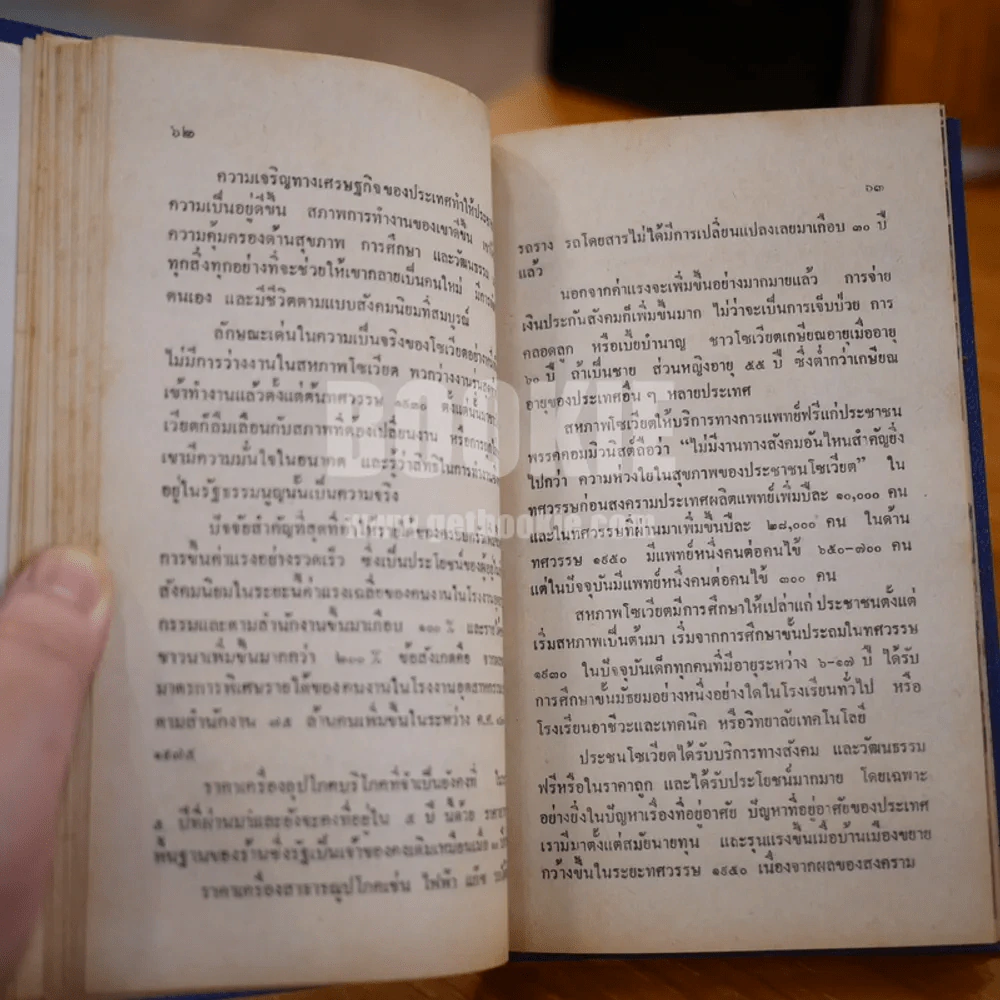 ๖๒
ความเจริญทางเศรษฐกิจของประเทศทำให้
ความเป็นอยู่ดีขึ้น สภาพการทำงานของเขาดีขึ้น
ความคุ้มครองด้านสุขภาพ การศึกษา และวัฒนธรรม
ทุกสิ่งทุกอย่างที่จะช่วยให้เขากลายเป็นคนใหม่
ตนเอง และมีชีวิตตามแบบสังคมนิยมที่สมบูรณ์
ลักษณะเด่นในความเป็นจริงของโซเวียต
ไม่มีการว่างงานในสหภาพโซเวียต
เข้าทำงานแล้วตั้งแต่ต้นทศวรรษ ๑๙๓๐
เวียตก็ลืมเลือนกับสภาพที่ต้องเปลี่ยนงาน
เขามีความมั่นใจในอนาคต และรู้ว่าสิทธิในการทำงาน
อยู่ในรัฐธรรมนูญนั้นเป็นความจริง
ปัจจัยสำคัญที่สุด
การขึ้นค่าแรงอย่างรวดเร็ว ซึ่งเป็นประโยชน์ของ
สังคมนิยมในระยะนี้ค่าแรงเฉลี่ยของคนงานในโรงงาน
กรรมและตามสำนักงานขึ้นมาเกือบ ๑๐๐%
ชาวนาเพิ่มขึ้นมากกว่า ๒๐๐% ข้อสังเกตคือ
มาตรการพิเศษรายได้ของคนงานในโรงงานอุตสาหกรรม
ตามสำนักงาน ๗๕ ล้านคนเพิ่มขึ้นในระหว่าง ค.ศ.
๑๙๗๕
ราคาเครื่องอุปโภคบริโภคที่จำเป็นยังคงที่
๕ ปีที่ผ่านมาและยังจะคงที่อยู่ใน ๕ ปี นี้ด้วย
พื้นฐานของร้านซึ่งรัฐเป็นเจ้าของคงเดิมเหมือนเมื่อ
ราคาเครื่องสาธารณูปโภคเช่น ไฟฟ้า แก๊ซ
๖๓
รถราง รถโดยสารไม่ได้มีการเปลี่ยนแปลงเลยมาเกือบ ๓๐ ปี
แล้ว
นอกจากค่าแรงจะเพิ่มขึ้นอย่างมากมายแล้ว การจ่าย
เงินประกันสังคมก็เพิ่มขึ้นมาก ไม่ว่าจะเป็นการเจ็บป่วย การ
คลอดลูก หรือเบี้ยบำนาญ ชาวโซเวียตเกษียณอายุเมื่ออายุ
๖๐ ปี ถ้าเป็นชาย ส่วนหญิงอายุ ๕๕ ปี ซึ่งต่ำกว่าเกษียณ
อายุของประเทศอื่น ๆ หลายประเทศ
สหภาพโซเวียตให้บริการทางการแพทย์ฟรีแก่ประชาชน
พรรคคอมมิวนิสต์ถือว่า “ไม่มีงานทางสังคมอันไหนสำคัญยิ่ง
ไปกว่า ความห่วงใยในสุขภาพของประชาชนโซเวียต” ใน
ทศวรรษก่อนสงครามประเทศผลิตแพทย์เพิ่มปีละ ๑๐,๐๐๐ คน
และในทศวรรษที่ผ่านมาเพิ่มขึ้นปีละ ๒๘,๐๐๐ คน ในด้าน
ทศวรรษ ๑๙๕๐ มีแพทย์หนึ่งคนต่อคนไข้ ๖๕๐–๗๐๐ คน
แต่ในปัจจุบันมีแพทย์หนึ่งคนต่อคนไข้ ๓๐๐ คน
สหภาพโซเวียตมีการศึกษาให้เปล่าแก่ประชาชนตั้งแต่
เริ่มสหภาพเป็นต้นมา เริ่มจากการศึกษาขั้นประถมในทศวรรษ
๑๙๓๐ ในปัจจุบันเด็กทุกคนที่มีอายุระหว่าง ๖-๑๗ ปี ได้รับ
การศึกษาขั้นมัธยมอย่างหนึ่งอย่างใดในโรงเรียนทั่วไป หรือ
โรงเรียนอาชีวะและเทคนิค หรือวิทยาลัยเทคโนโลยี
ประชนโซเวียตได้รับบริการทางสังคม และวัฒนธรรม
ฟรีหรือในราคาถูก และได้รับประโยชน์มากมาย โดยเฉพาะ
อย่างยิ่งในปัญหาเรื่องที่อยู่อาศัย ปัญหาที่อยู่อาศัยของประเทศ
เรามีมาตั้งแต่สมัยนายทุน และรุนแรงขึ้นเมื่อบ้านเมืองขยาย
กว้างขึ้นในระยะทศวรรษ ๑๙๕๐ เนื่องจากผลของสงคราม
BOOKIE
www.getbookie.com